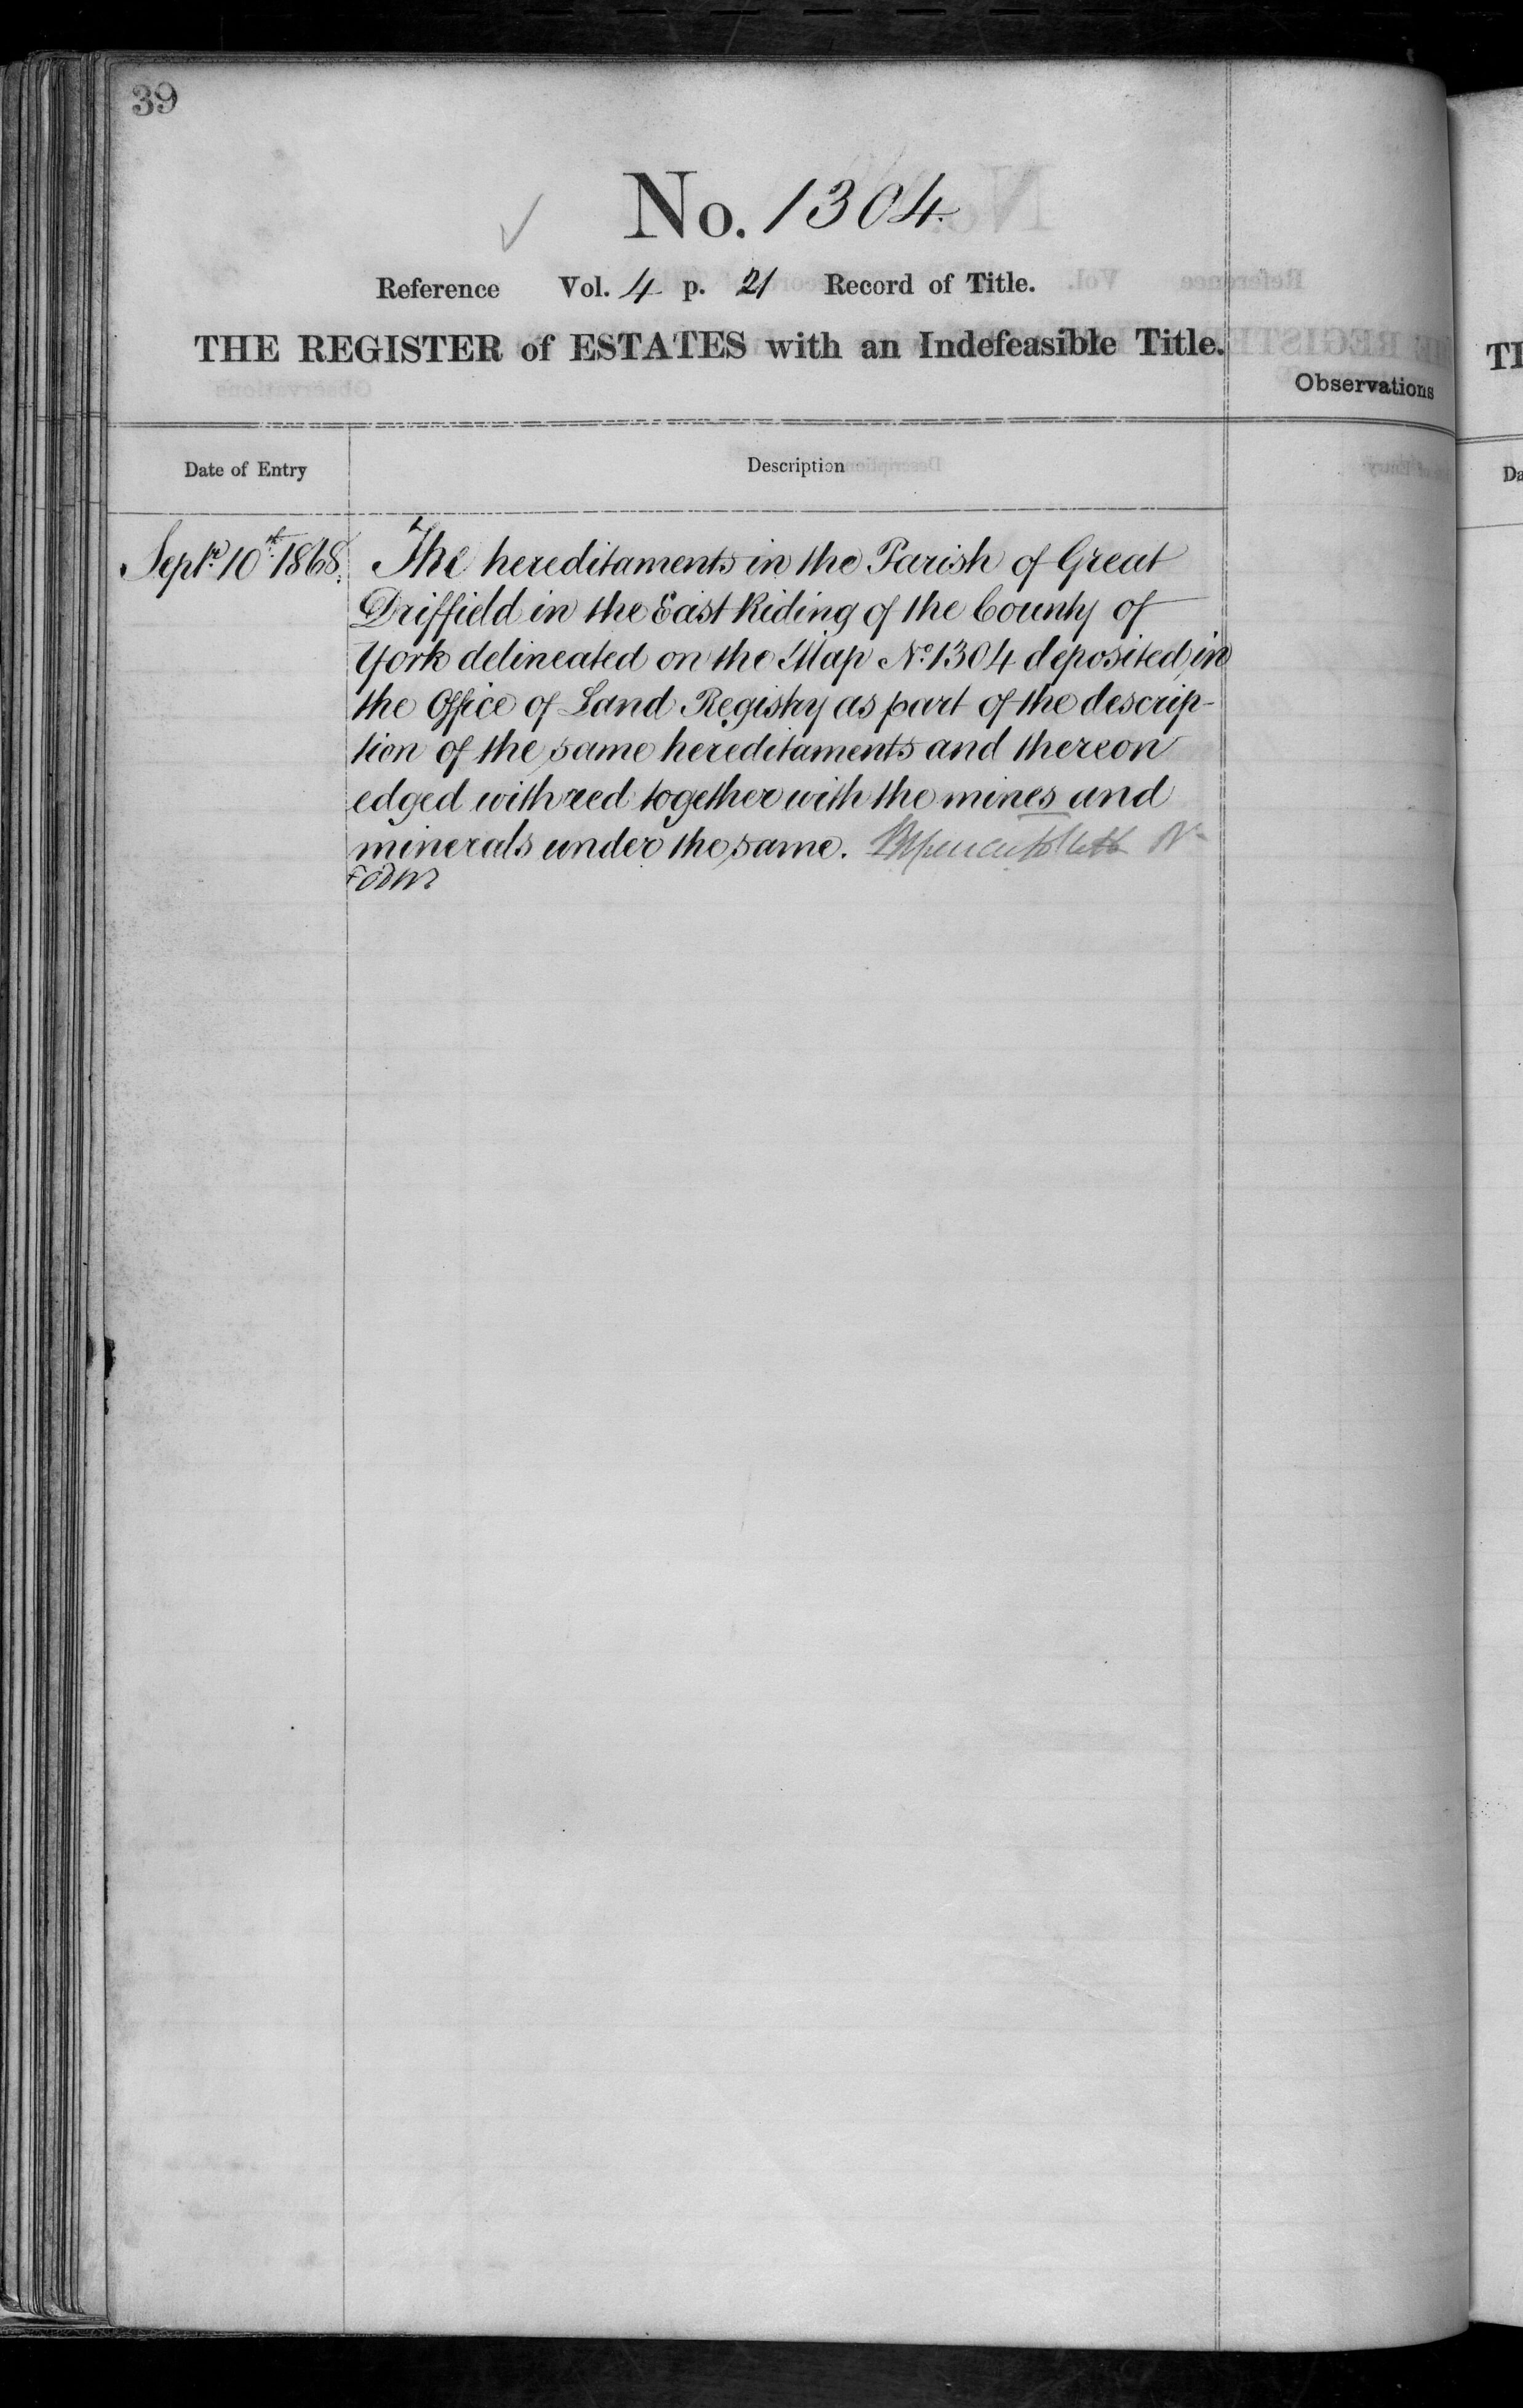 39
No. 1304.
Reference Vol. 4 p. 21 Record of Title.
THE REGISTER of ESTATES with an Indefeasible Title.
Observations
Date of Entry
Description
Septr. 10th. 1868.
The hereditaments in the Parish of Great
Driffield in the East Riding of the County of
York delineated on the Map No. 1304 deposited in
the Office of Land Registry as part of the descrip-
tion of the same hereditaments and thereon
edged with red together with the mines and
minerals under the same.